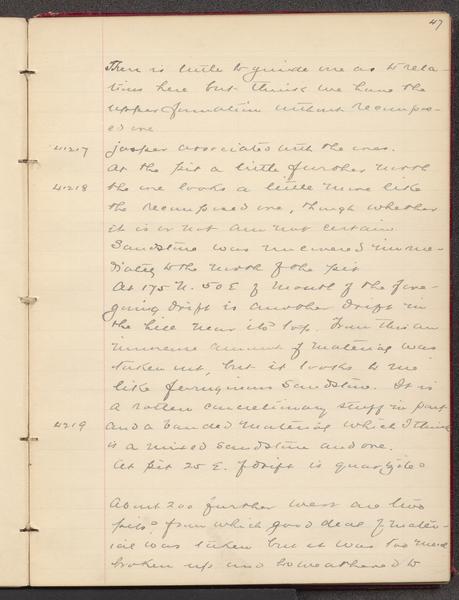 47
There is little to guide one as to rela-
tions here but think we have the
upper formation without recompos-
ed ore
41217 jasper associated with the ores.
At the pit a little further north
41218 the ore looks a little more like
the recomposed ore, though whether
it is or not am not certain
Sandstone was uncovered imme-
diately to the north of the pit
At 175 N. 50 E of mouth of the fore-
going drift is another drift in
the hill near its top. From this an
immense amount of material was
taken out, but it looks to me
like ferruginous sandstone. It is
a rotten concretionary stuff in part
4219 and a banded material which I think
is a mixed sandstone and ore.
At pit 25 E. of drift is quartzite
About 200 further west are two
pits from which good deal of mater-
ial was taken but it was too much
broken up and weathered to